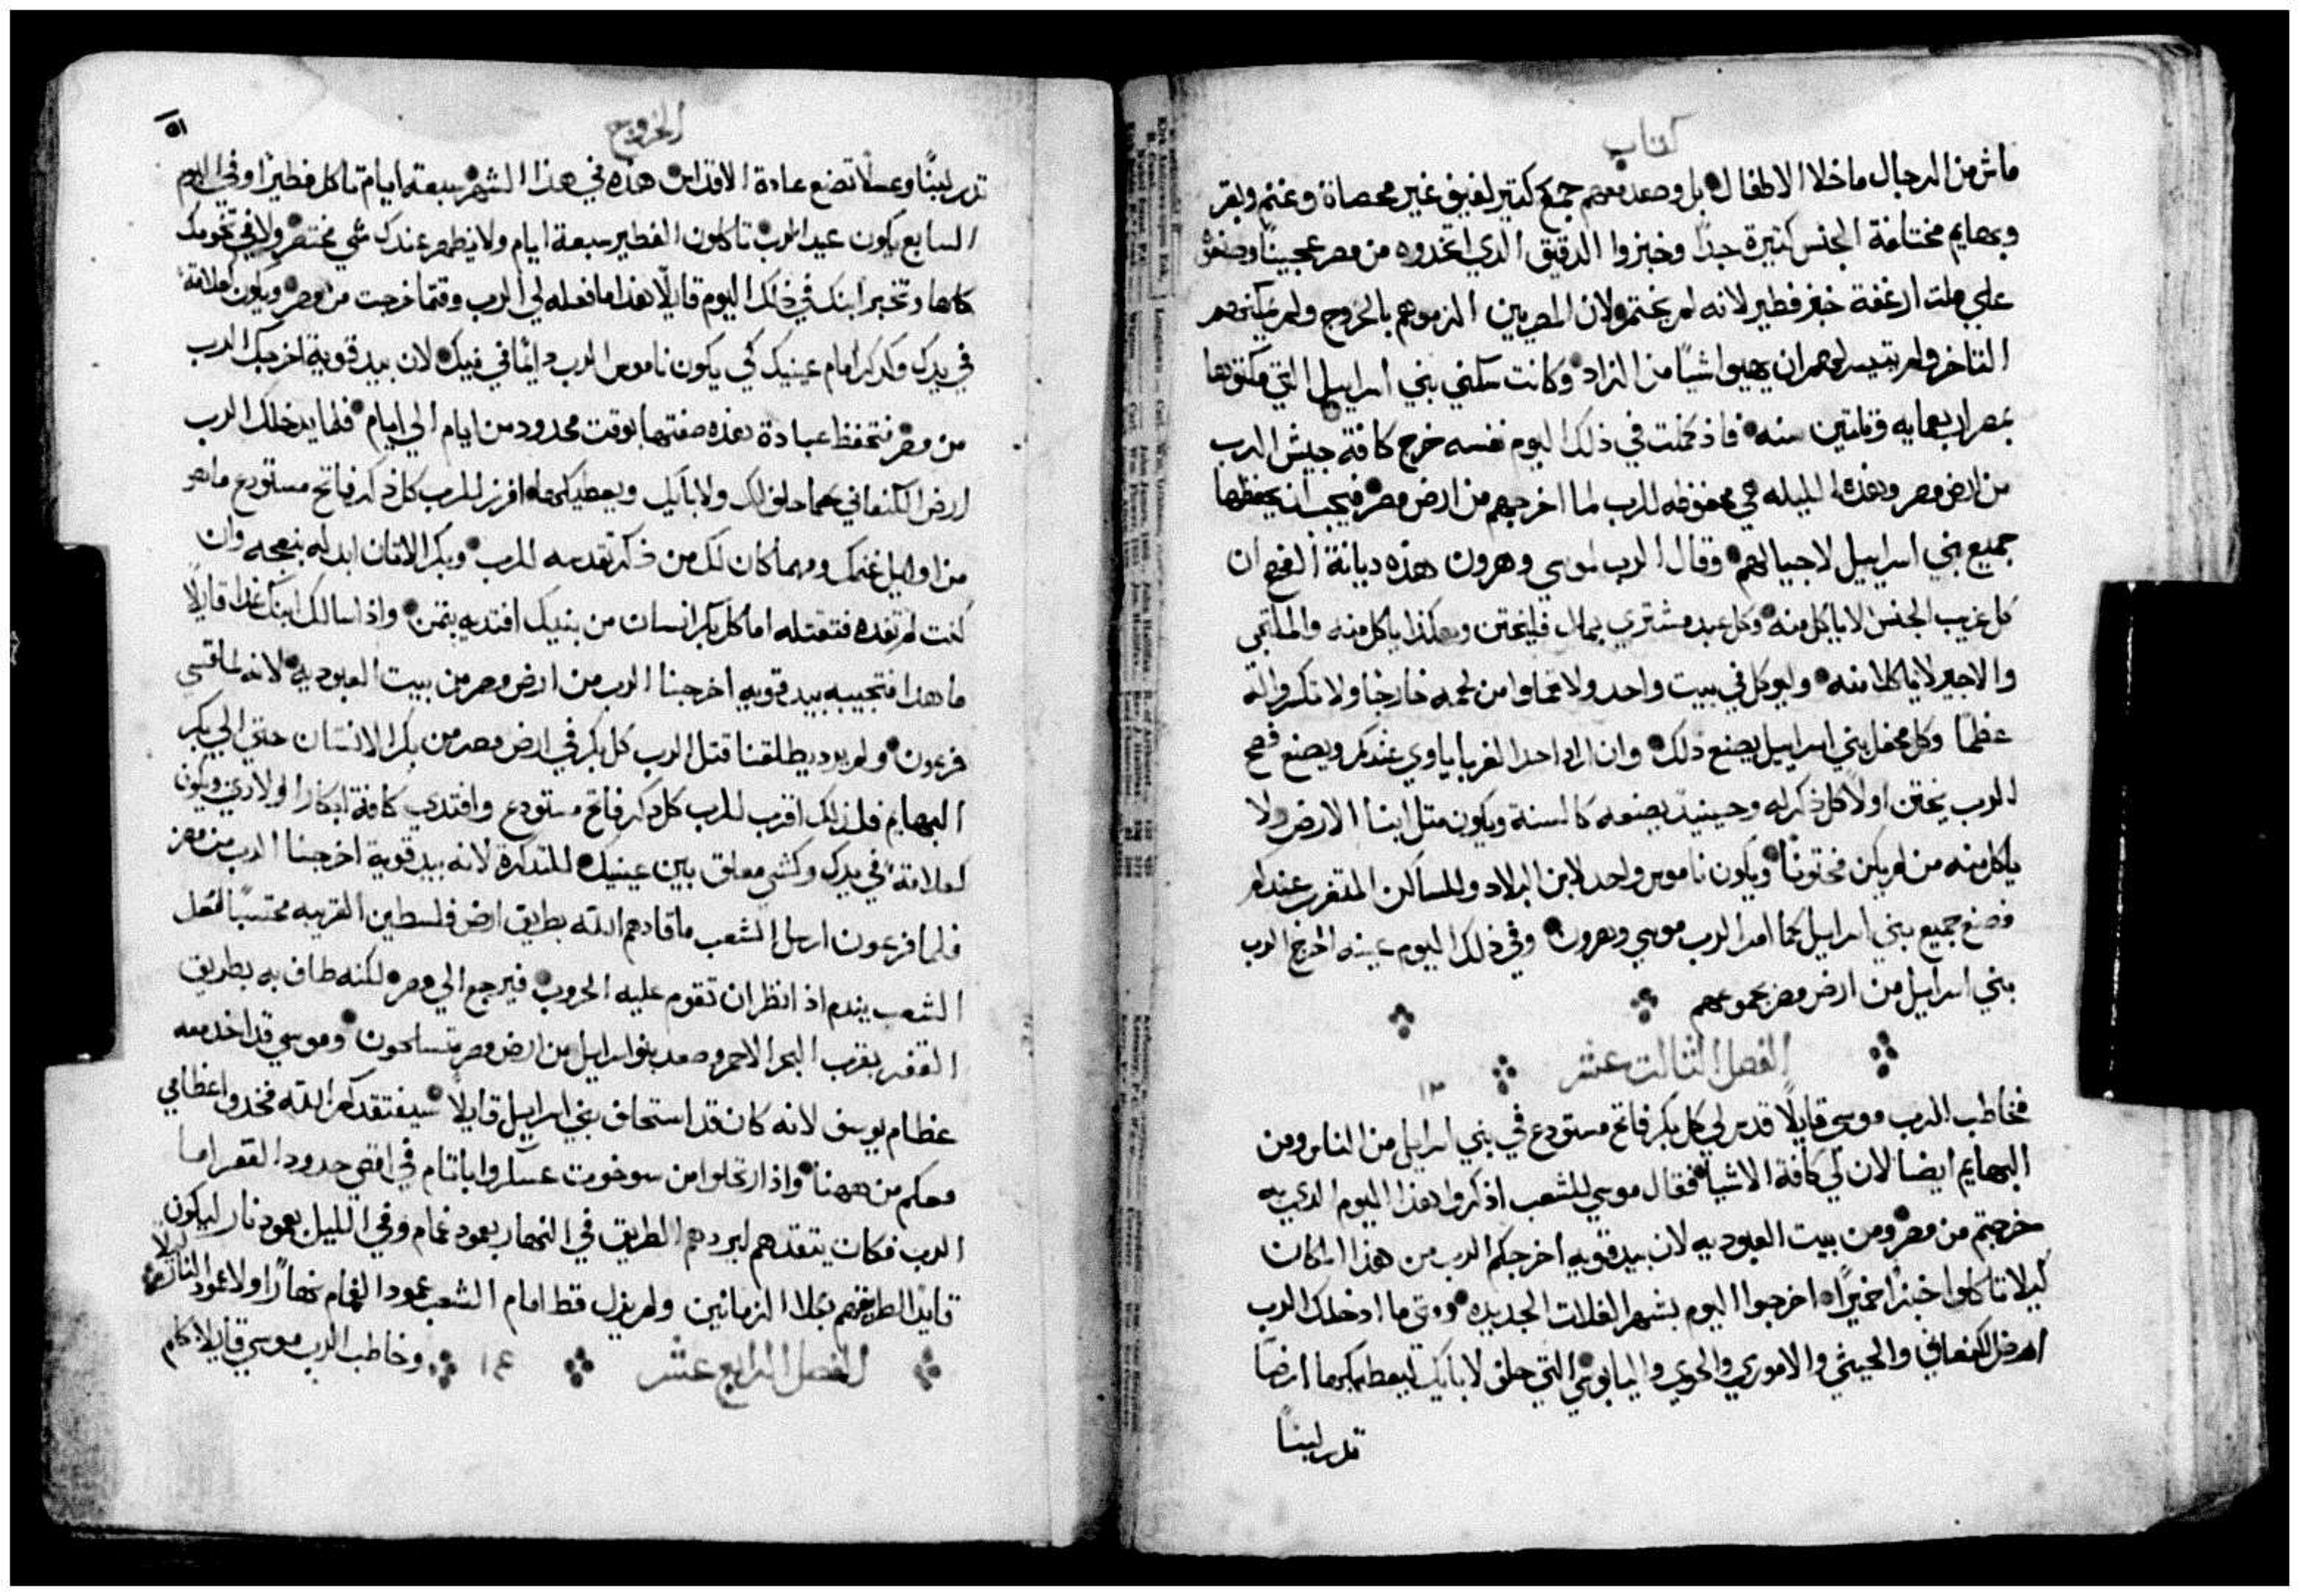 كتاب
ماش من الرجال ما خلا الاطفال بل وصعد معهم جمع كتير لفيف غير محصاة وغنم وبقر
وبهايم مختلفة الجنس كتيرة جدًا وخبزوا الدقيق الدي اتخدوه من مصر عجينًا وصنعوا
علي ملت ارغفة خبز فطير لانه لم يختمر ولان المصريين الزموهم بالخروج ولم يمكنهم
التاخر ولم يتيسر لهم ان يهيوا شيًا من الزاد وكانت سكني بني اسراييل التي مكثوها
بمصر اربعمايه وتلتين سنه فاذ كملت في ذلك اليوم نفسه خرج كافة جيش الرب
من ارض مصر وهذه الليله هي محفوظه للرب لما اخرجهم من ارض مصر فيجب ان يحفظها
جميع بني اسراييل لاجيالهم وقال الرب لموسي وهرون هذه ديانة الفصح ان
كل غريب الجنس لا ياكل منه وكل عبد مشتري بمال فليختن وهكذا ياكل منه والملتجي
والاجير لا ياكلا منه وليوكل في بيت واحد ولا تخملوا من لحمه خارجا ولا تكسروا له
عظمًا وكل محفل بني اسراييل يصنع ذلك وان اراد احد الغربا ياوي عندكم ويصنع فصح
الرب يختن اولاً كل ذكر له وحينيد يصنعه كالسنة ويكون متل ابنا الارض ولا
ياكل منه من لم يكن مختونًا ويكون ناموس واحد لابن البلاد وللساكن المتغرب عندكم
فصنع جميع بني اسراييل كما امر الرب موسي وهرون وفي ذلك اليوم عينه اخرج الرب
بني اسراييل من ارض مصر بجموعهم
الفصل التالت عشر ١٣
فخاطب الرب موسي قايلًا قدس لي كل بكر فاتح مستودع في بني اسراييل من الناس ومن
البهايم ايضا لان لي كافة الاشيا فقال موسي للشعب اذكروا هذا اليوم الدي به
خرجتم من مصر ومن بيت العبوديه لان بيد قويه اخرجكم الرب من هذا المكان
ليلا تاكلوا خبزًا خميرًا اخرجوا اليوم بشهر الغلات الجديده ومتي ما ادخلك الرب
ارض الكنعاني والحيتي والاموري والحوي واليابوسي التي حلف لابايك ليعطيكم ما ارضًا
تدر لبنًا
الخروج
٥١
تدر لبنًا وعسلًا تصنع عادة الاقداس هذه في هذا الشهر سبعة ايام تاكل فطيرًا وفي اليوم
السابع يكون عيد الرب تاكلون الفطير سبعة ايام ولا يظهر عندك شي مختمر ولا في تخومك
كلها وتخبر ابنك في ذلك اليوم قايلًا هذا ما فعله لي الرب وقتما خرجت من مصر ويكون كعلامة
في يدك وكذكر امام عينيك كي يكون ناموس الرب دايمًا في فيك لان بيد قوية اخرجك الرب
من مصر فتحفظ عبادة هذه صفتها بوقت محدود من ايام الي ايام فلما يدخلك الرب
ارض الكنعاني كما حلف لك ولابايك ويعطيكها افرز للرب كل ذكر فاتح مستودع ما هو
من اوايل غنمك ومهما كان لك من ذكر تقدسه للرب وبكر الاتان ابدله بنعجه وان
كنت لم تفده فتقتله اما كل بكر انسان من بنيك افتديه بتمن واذا سالك ابنك غدا قايلًا
ما هدا فتجيبه بيد قويه اخرجنا الرب من ارض مصر من بيت العبوديه لانه لما قسي
فرعون ولم يرد يطلقنا قتل الرب كل بكر في ارض مصر من بكر الانسان حتي الي بكر
البهايم فلذلك اقرب للرب كل ذكر فاتح مستودع وافتدي كافة ابكار اولادي ويكون
كعلامة في يدك وكشي معلق بين عينيك للتدكرة لانه بيد قوية اخرجنا الرب من مصر
فلما فرعون ارسل الشعب ما قادهم الله بطريق ارض فلسطين القريبه محتسبًا لعل
الشعب يندم اذ انظر ان تقوم عليه الحروب فيرجع الي مصر لكنه طاف به بطريق
القفر بقرب البحر الاحمر وصعد بنو اسراييل من ارض مصر متسلحون وموسي قد اخد معه
عظام يوسف لانه كان قد استحلف بني اسراييل قايلًا سيفتقدكم الله فخدوا عظامي
معكم من ههنا واذ ارتحلوا من سوخوت عسكروا باتام في اقصي حدود القفر اما
الرب فكان يتقدمهم ليريهم الطريق في النهار بعمود غمام وفي الليل بعمود نار ليكون
قايدًا لطريقهم بكلا الزمانين ولم يزل قط امام الشعب عمود الغمام نهارًا ولا عمود النار ليلًا
الفصل الرابع عشر ١٤ وخاطب الرب موسي قايلًا كلم